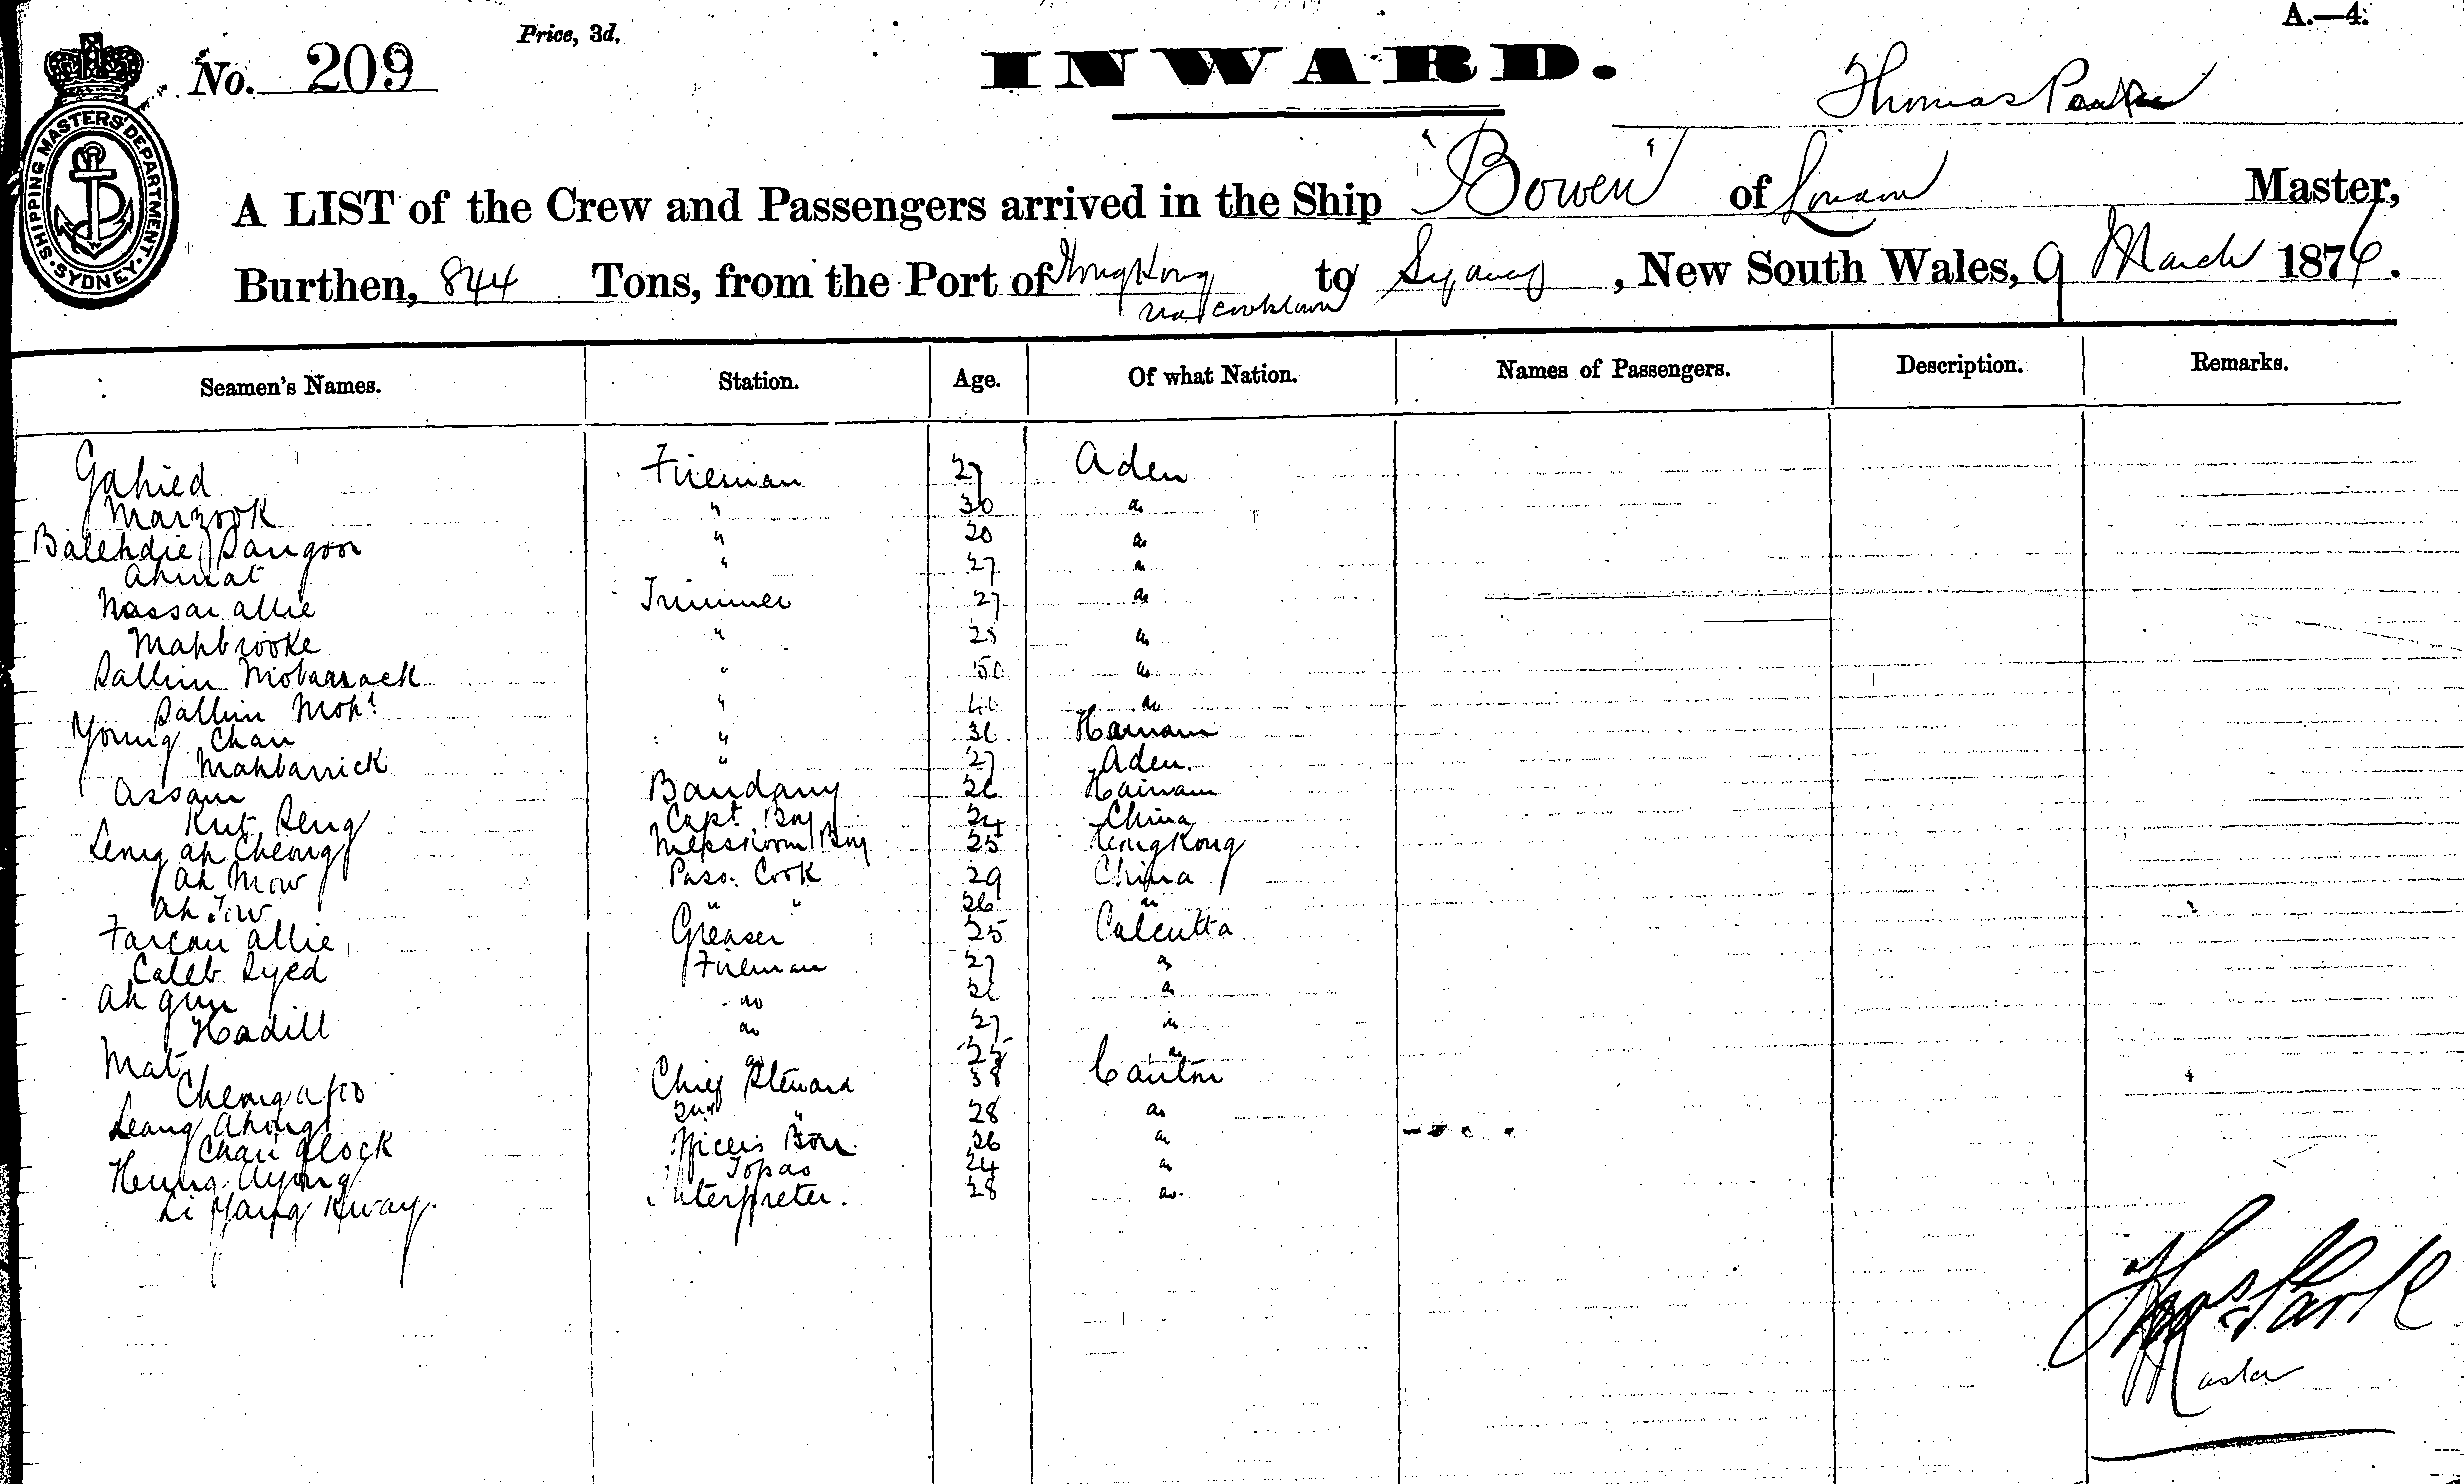 A.—4.
Price, 3d.
No. 209
INWARD.
SHIPPING MASTERS DEPARTMENT. SYDNEY.
Thomas
A LIST of the Crew and Passengers arrived in the Ship "Bowen" of Master,
Burthen, 844 Tons, from the Port of Hong Kong to Sydney, New South Wales, 9 March 1876.
via Cooktown
Seamen's Names. Station. Age. Of what Nation. Names of Passengers. Description. Remarks.
Gahied Fireman 27 Aden
Marzook " 30 do
Balehdie Sangoor " 20 do
Ahmat " 27 do
Nassar allie Trimmer 27 do
Mahbrooke " 28 do
Sallim Mobarrack " 50 do
Sallim Moht " 40 do
Young Chan " Hainam
Mahbarrick " 27 Aden.
Assam Hainam
Kut Seng Capt. Boy 24 China
Leng ah Cheong Messroom Boy 25 HongKong
Ah Mow Pass. Cook 29 China
Ah " " 26 do
Farcau allie Greaser 25 Calcutta
Caleb Syed Fireman 27 do
Ah gun do do
Hadill do 27 do
Mat do 25 do
Cheong afoo Chief Steward 38 Canton
Leang Ahing 2nd " 28 do
Chan Alock Officers Boy 26 do
Heung Ayong Topas 24 do
Li Yang Kway. Interpreter. 28 do.
Master